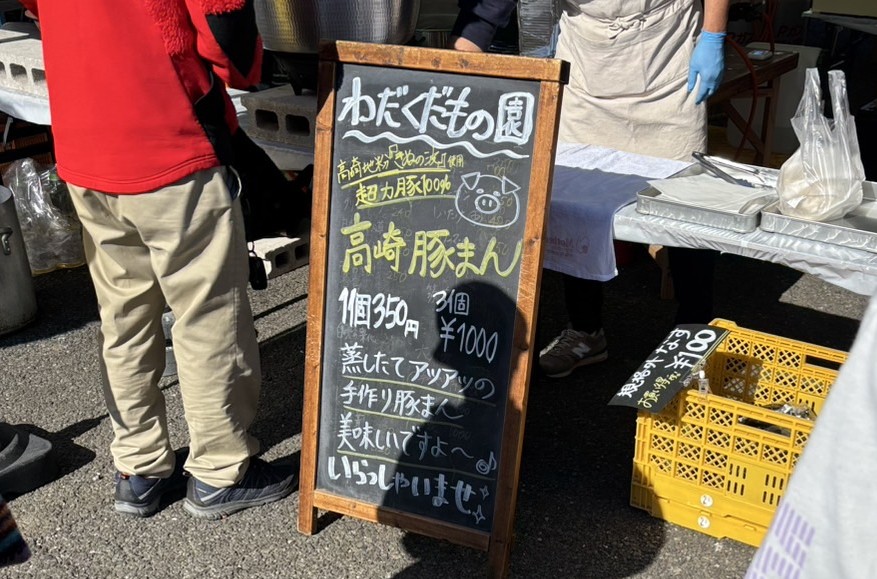 わだくだもの園
高崎地粉『きぬの波』使用
超力豚100%
高崎 豚まん
1個350円
3個
¥1000
蒸したてアツアツの
手作り豚まん
美味しいですよ〜♪
いらっしゃいませ